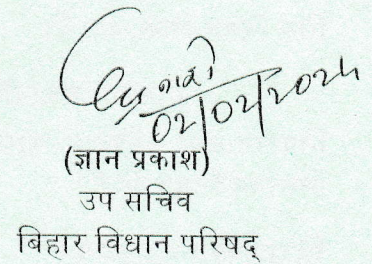 02/02/2024
(ज्ञान प्रकाश)
उप सचिव
बिहार विधान परिषद्